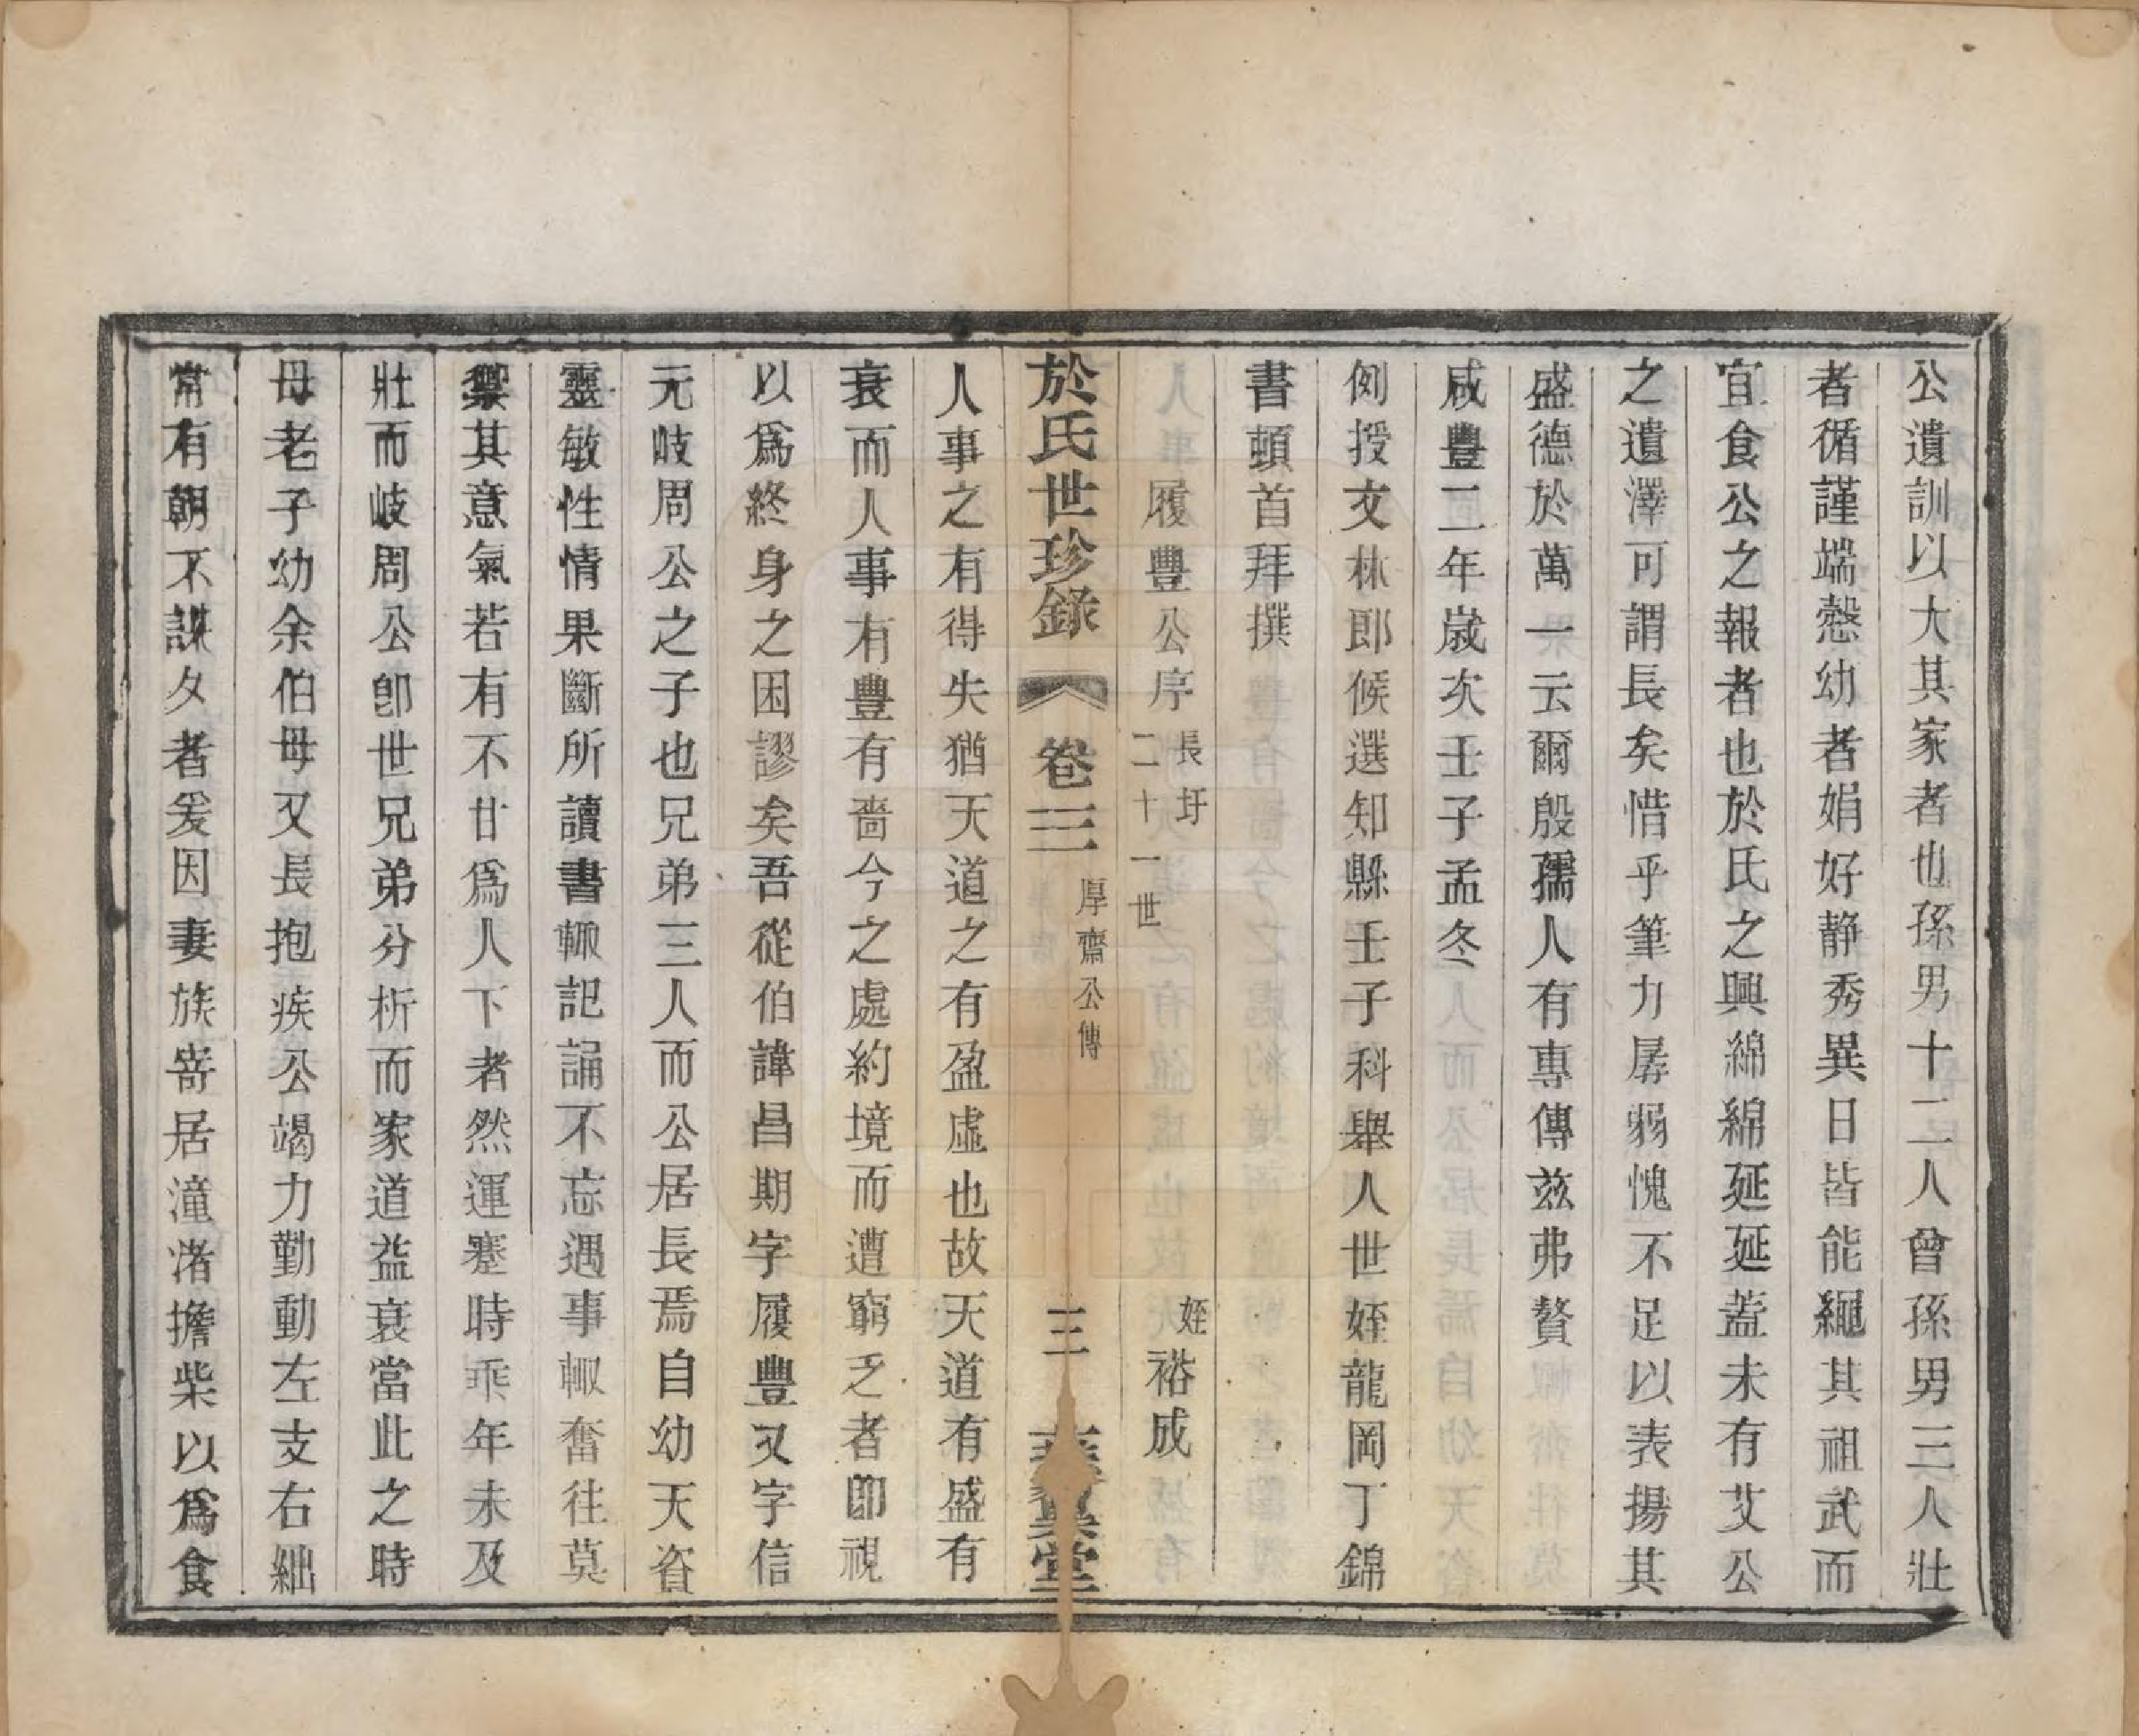 公遺訓以大其家者也孫男十二人曾孫男三人壯
者循謹端慤幼者娟好静秀異日皆能繩其祖武而
宜食公之報者也於氏之興綿綿延延蓋未有艾公
之遺澤可謂長矣惜乎筆力孱弱愧不足以表揚其
盛德於萬一云爾殷孺人有專傳兹弗贅
咸豐二年歲次壬子孟冬
例授文林郎候選知縣壬子科舉人世姪龍岡丁錦
書頓首拜撰
履豐公序 長圩二十一世 姪裕成
於氏世珍錄 卷三 厚齋公傳 三 堂
人事之有得失猶天道之有盈虛也故天道有盛有
衰而人事有豐有嗇今之處約境而遭窮乏者卽視
以爲終身之困謬矣吾從伯諱昌期字履豐又字信
元岐周公之子也兄弟三人而公居長焉自幼天資
靈敏性情果斷所讀書輙記誦不忘遇事輙奮往莫
禦其意氣若有不甘爲人下者然運蹇時乖年未及
壯而岐周公卽世兄弟分析而家道益衰當此之時
母老子幼余伯母又長抱疾公竭力勤動左支右絀
常有朝不謀夕者爰因妻族寄居潼渚擔柴以爲食